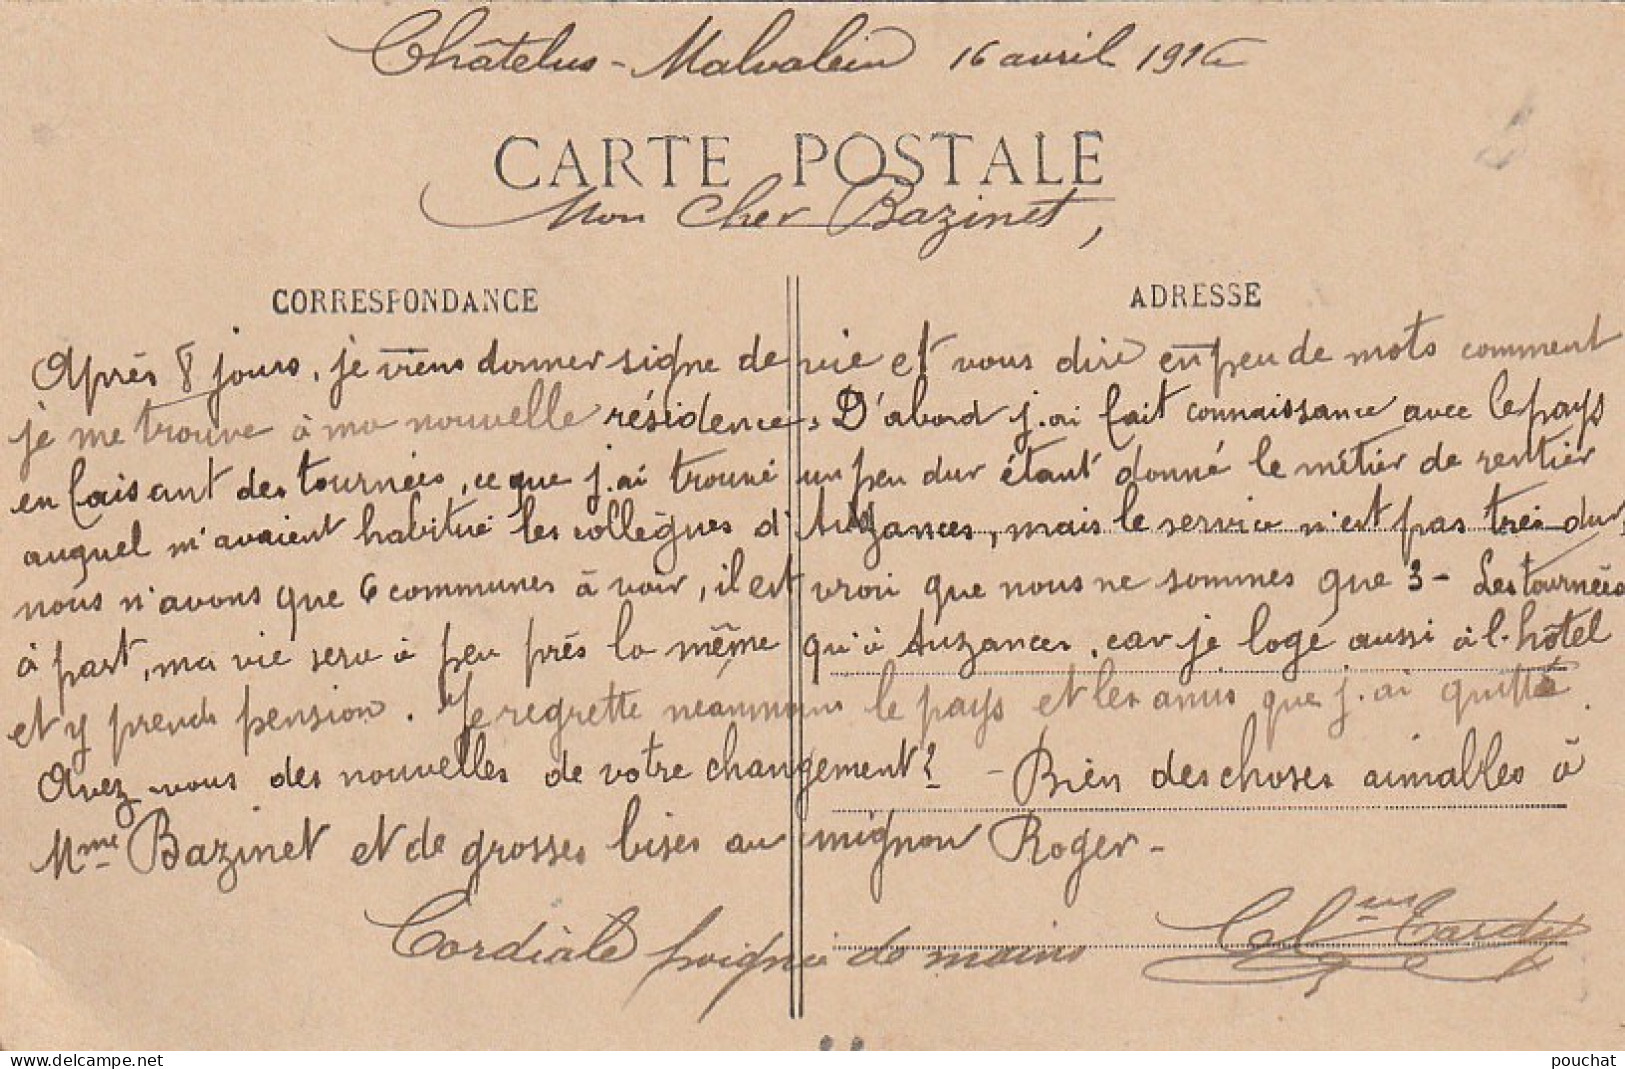 Châtelus-Malvaleix 16 avril 191
CARTE POSTALE
Mon Cher Bazinet,
CORRESPONDANCE
ADRESSE
Après 8 jours, je viens donner signe de vie et vous dire en peu de mots comment
je me trouve à ma nouvelle résidence. D'abord j'ai fait connaissance avec le pays
en faisant des tournées, ce que j'ai trouvé un peu dur étant donné le métier de rentier
auquel m'avaient habitué les collègues d'Auzances, mais le service n'est pas très dur,
nous n'avons que 6 communes à voir, il est vrai que nous ne sommes que 3 - Les tournées
à part, ma vie sera à peu près la même qu'à Auzances, car je loge aussi à l'hôtel
et y prends pension. Je regrette néanmoins le pays et les amis que j'ai quitté.
Avez-vous des nouvelles de votre changement? - Bien des choses aimables à
Mme Bazinet et de grosses bises au mignon Roger -
Cordiale poignée de mains
Tardy
delcampe.net
pouchat